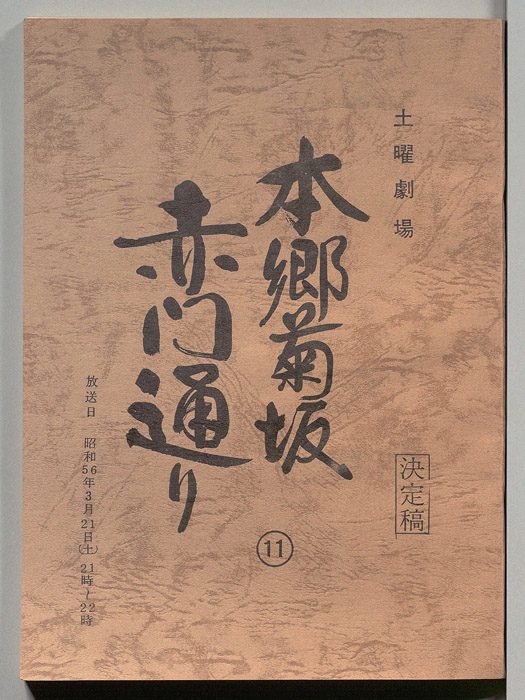 土曜劇場
決定稿
本郷菊坂
⑪
赤門通り
放送日 昭和56年3月21日(土)21時〜22時